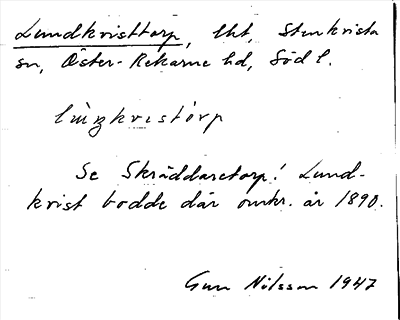 Lundkristtorp, lht, Stenkvista
sn, Öster-Rekarne hd, Södl.
Se Skräddaretorp! Lund-
krist bodde där omkr. år 1890.
Gun Nilsson 1947